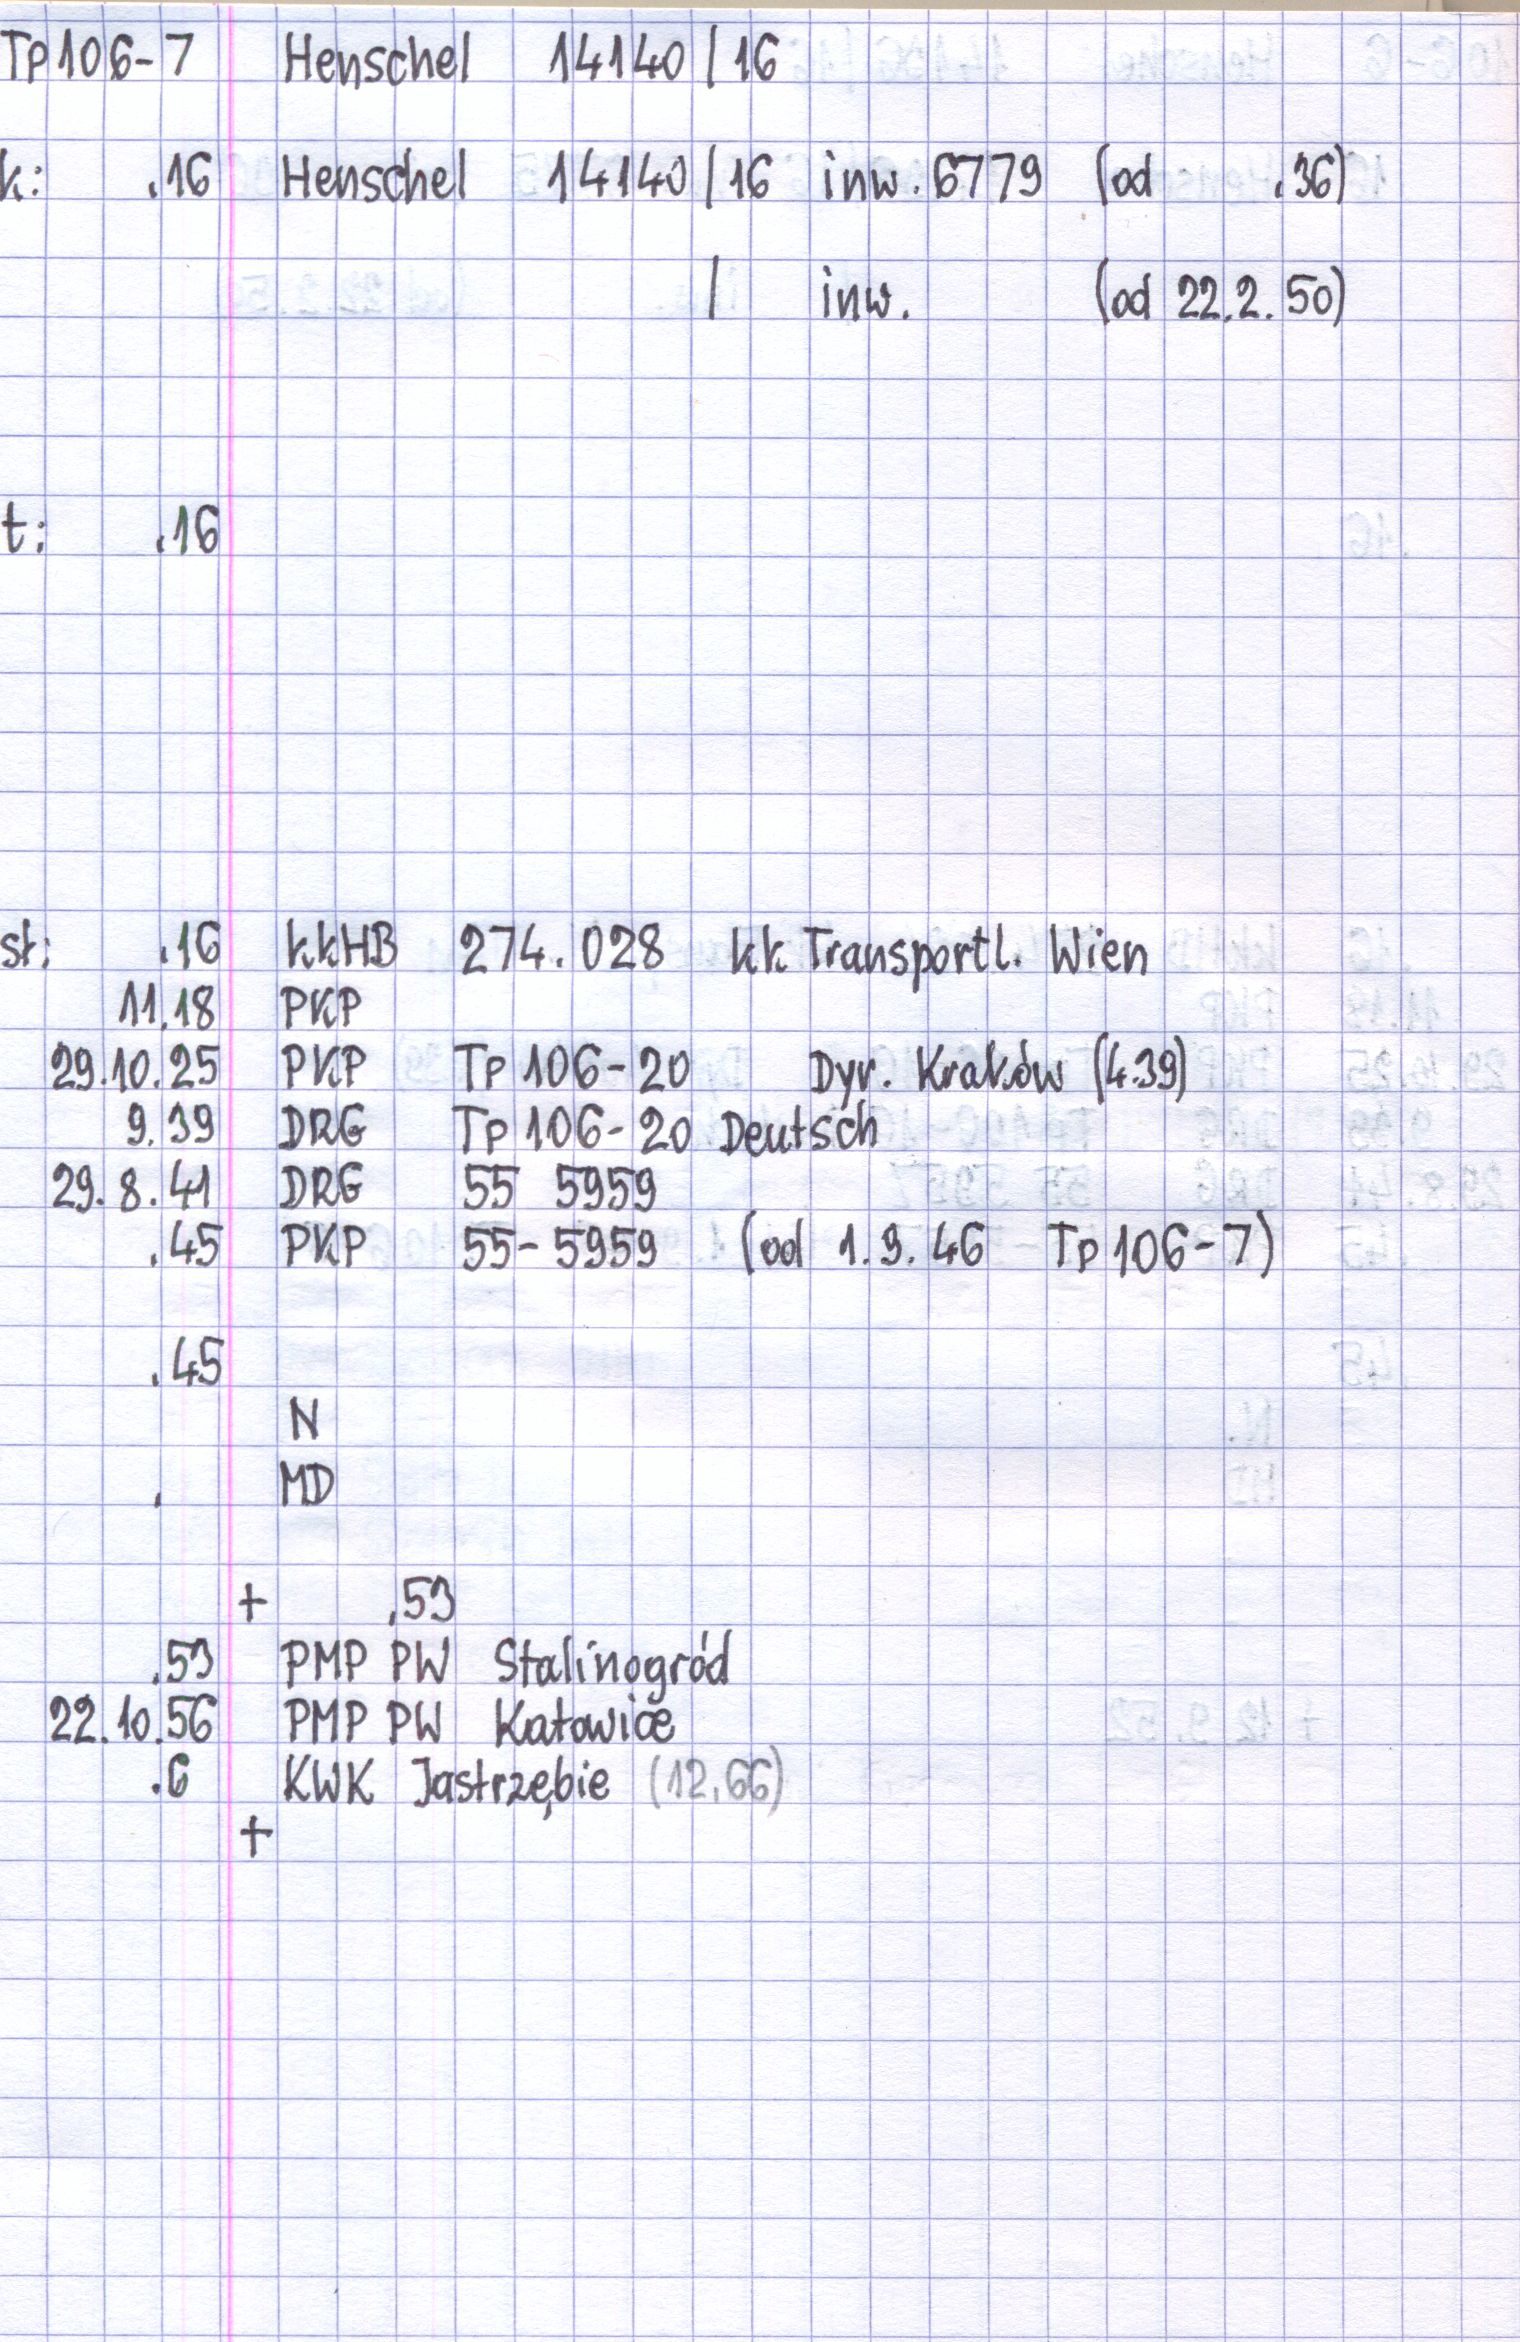 Tp106-7 Henschel 14140/16
k: .16 Henschel 14140/16 inw. 6779 (od .36)
/ inw. (od 22.2.50)
t: .16
st: .16 kkHB 274.028 kk Transportl. Wien
11.18 PKP
29.10.25 PKP Tp106-20 Dyr. Kraków (4.39)
9.39 DRG Tp106-20 Deutsch
29.8.41 DRG 55 5959
.45 PKP 55-5959 (od 1.9.46 Tp106-7)
.45
N
. MD
+ .53
.53 PMP PW Stalinogród
22.10.56 PMP PW Katowice
.6 KWK Jastrzębie (12.66)
+